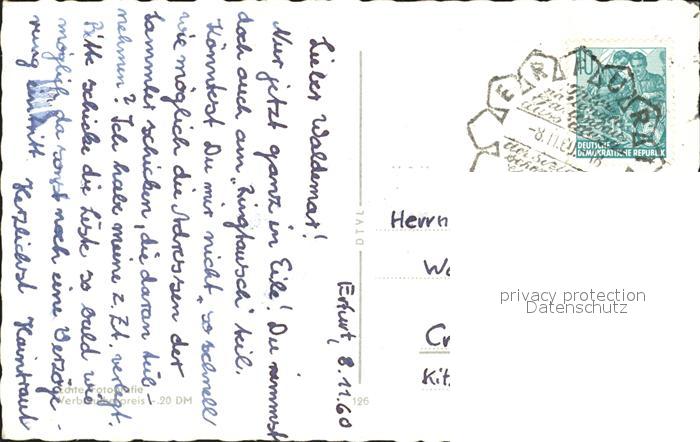 Erfurt, 8.11.60
Lieber Waldemar!
Nur jetzt ganz in Eile! Du nimmst
doch auch am „Ringtausch" teil.
Könntest Du mir nicht, so schnell
wie möglich die Adressen der
Sammler schicken, die daran teil-
nehmen? Ich habe meine z. Zt. verlegt.
Bitte schicke die Liste so bald wie
möglich, da sonst noch eine Verzöge-
rung eintritt. Herzlichst Heintraut
Echte Fotografie
Verbraucherpreis -.20 DM
126
DIVL
ERFURT
8.11.60
10
DEUTSCHE
DEMOKRATISCHE REPUBLIK
Herrn
We
Cr
Kit
privacy protection
Datenschutz